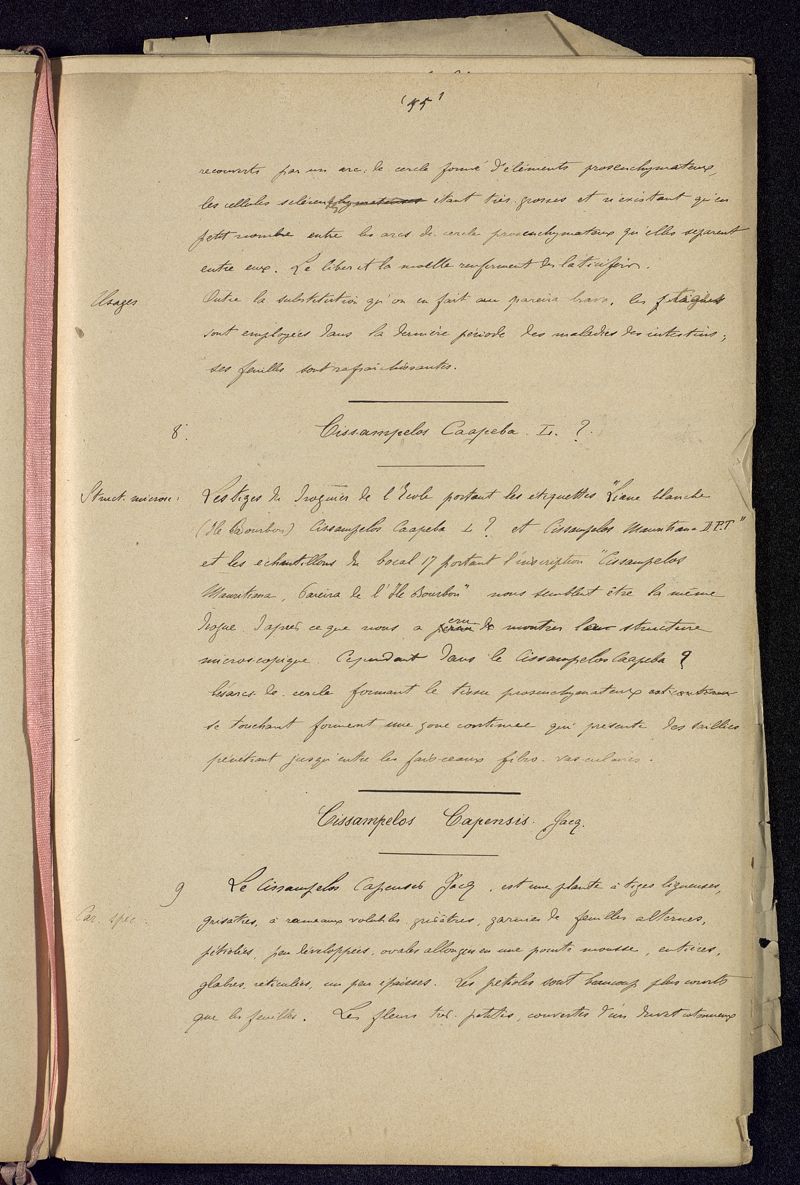 (55)
recouverts par un arc de cercle formé d'éléments prosenchymateux,
les cellules scléren étant très grosses et n'existant qu'en
petit nombre entre les arcs de cercle prosenchymateux qu'elles séparent
entre eux. Le liber et la moelle renferment des laticifères.
Usages Outre la substitution qu'on en fait au pareira brava, les tiges
sont employées dans la dernière période des maladies des intestins;
ses feuilles sont rafraichissantes.
8. Cissampelos Caapeba. L. ?
Struct. microsc: Les tiges du Droguier de l'Ecole portant les etiquettes "Liane blanche
(Ile Bourbon) Cissampelos Caapeba L ? et Cissampelos Mauritiana D.P.T"
et les echantillons du bocal 17 portant l'inscription "Cissampelos
Mauritiana, Pareira de l'Ile Bourbon" nous semblent être la même
drogue d'après ce que nous a montrer leur structure
microscopique. Cependant dans le Cissampelos Caapeba ?
les arcs de cercle formant le tissu prosenchymateux
se touchant forment une zone continue qui présente des saillies
pénétrant jusqu'entre les faisceaux fibro-vasculaires.
Cissampelos Capensis. Jacq.
9 Le Cissampelos Capensis Jacq. est une plante à tiges ligneuses,
Car. spéc: grisâtres, à rameaux volubiles, grisâtres, garnies de feuilles alternes,
pétiolées, peu développées, ovales allongées en une pointe mousse, entières,
glabres, reticulées, un peu épaisses. Les petioles sont beaucoup plus courts
que les feuilles. Les fleurs très petites, couvertes d'un duvet cotonneux